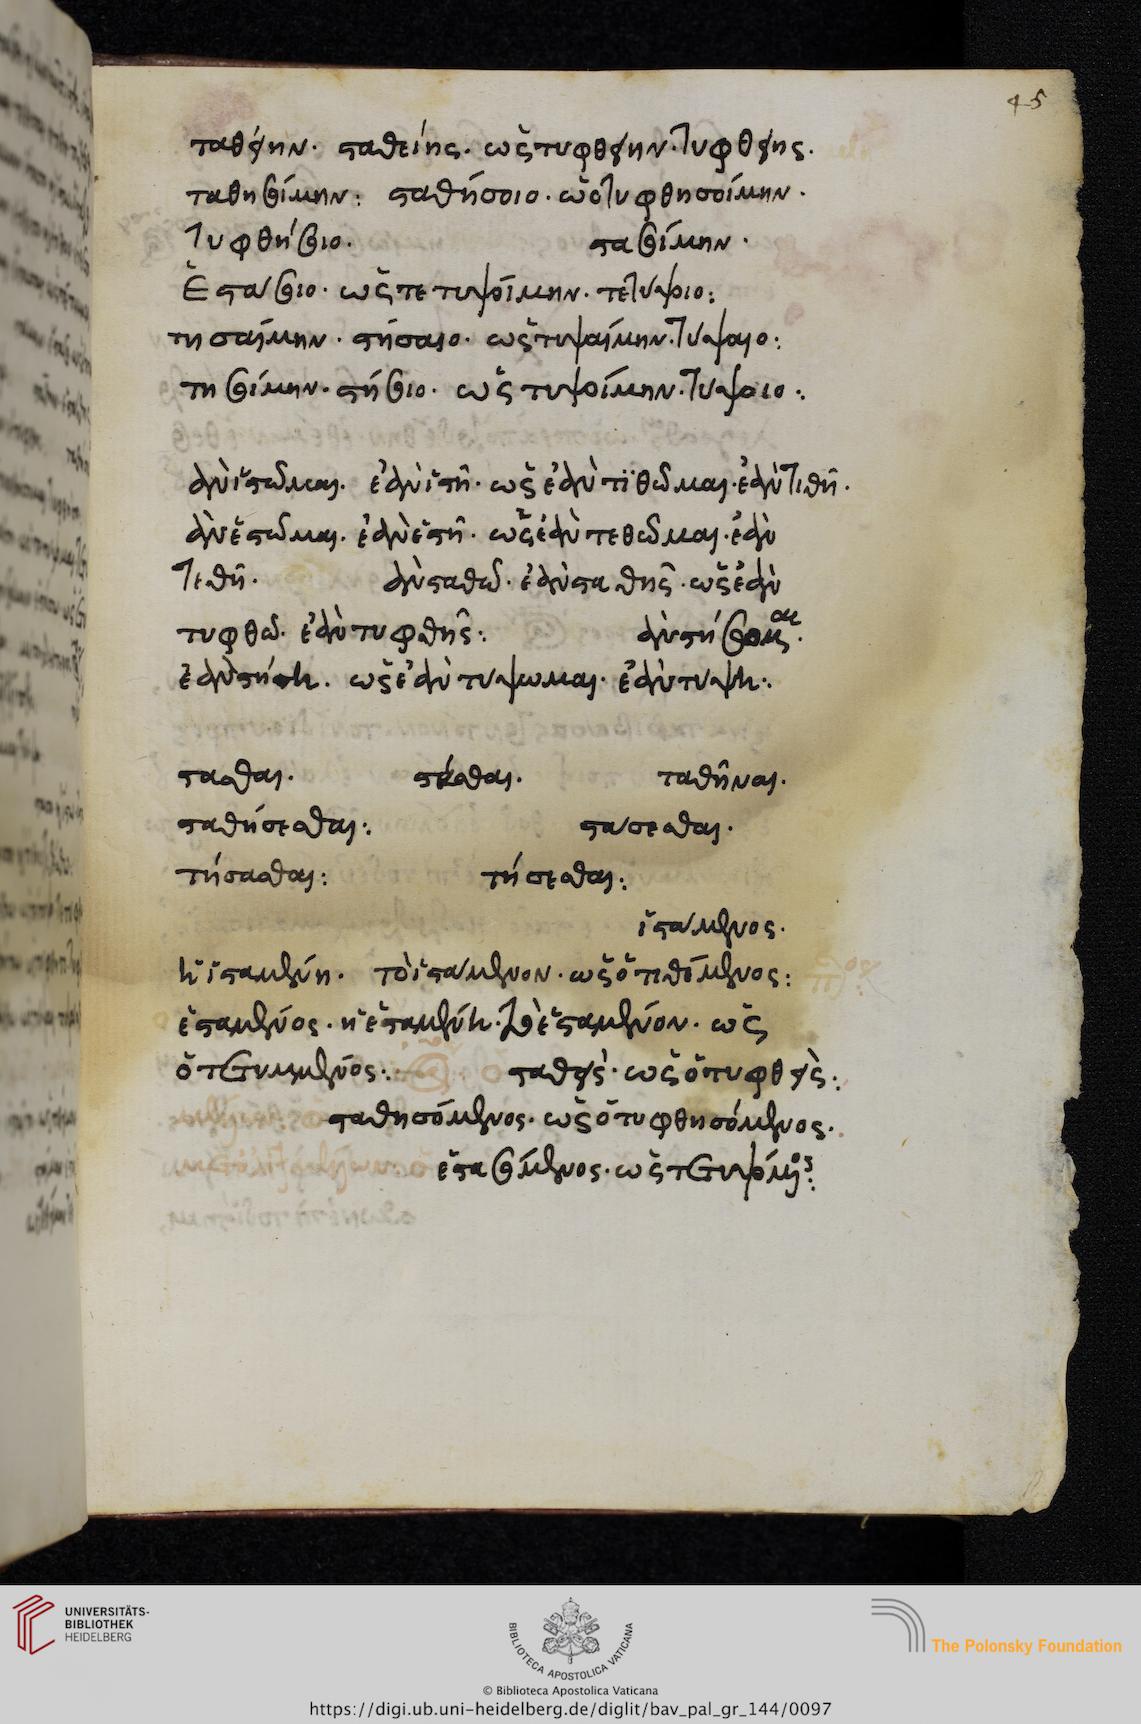 45
ταθείην· σταθείης· ὡς τυφθείην· τυφθείης·
ταθησοίμην: σταθήσοιο· ὡς τυφθησοίμην·
τυφθήσοιο· στασοίμην·
ἑστάσοιο· ὡς τετυψοίμην· τετύψοιο:
τησαίμην· στήσαιο· ὡς τυψαίμην· τύψαιο:
τησοίμην· στήσοιο· ὡς τυψοίμην· τύψοιο:
ἐὰν ἱστῶμαι· ἐὰν ἱστῇ· ὡς ἐὰν τιθῶμαι· ἐὰν τιθῇ·
ἐὰν ἑστῶμαι· ἐὰν ἑστῇ· ὡς ἐὰν τεθῶμαι· ἐὰν
τεθῇ· ἐὰν σταθῶ· ἐὰν σταθῇς· ὡς ἐὰν
τυφθῶ· ἐὰν τυφθῇς: ἐὰν στήσωμαι·
ἐὰν στήση· ὡς ἐὰν τύψωμαι· ἐὰν τύψη:
στασθαι· στάσθαι· ταθῆναι·
σταθήσεσθαι: στάσεσθαι·
τήσασθαι: τήσεσθαι:
ἱστάμενος·
ἡ ἱσταμένη· τὸ ἱστάμενον· ὡς ὁ τιθέμενος:
ἑσταμένος· ἡ ἑσταμένη· τὸ ἑσταμένον· ὡς
ὁ τετυμμένος: σταθείς· ὡς ὁ τυφθείς:
σταθησόμενος· ὡς ὁ τυφθησόμενος·
ἑστασόμενος· ὡς τετυψόμενος:
UNIVERSITÄTS-
BIBLIOTHEK
HEIDELBERG
BIBLIOTECA APOSTOLICA VATICANA
The Polonsky Foundation
© Biblioteca Apostolica Vaticana
https://digi.ub.uni-heidelberg.de/diglit/bav_pal_gr_144/0097